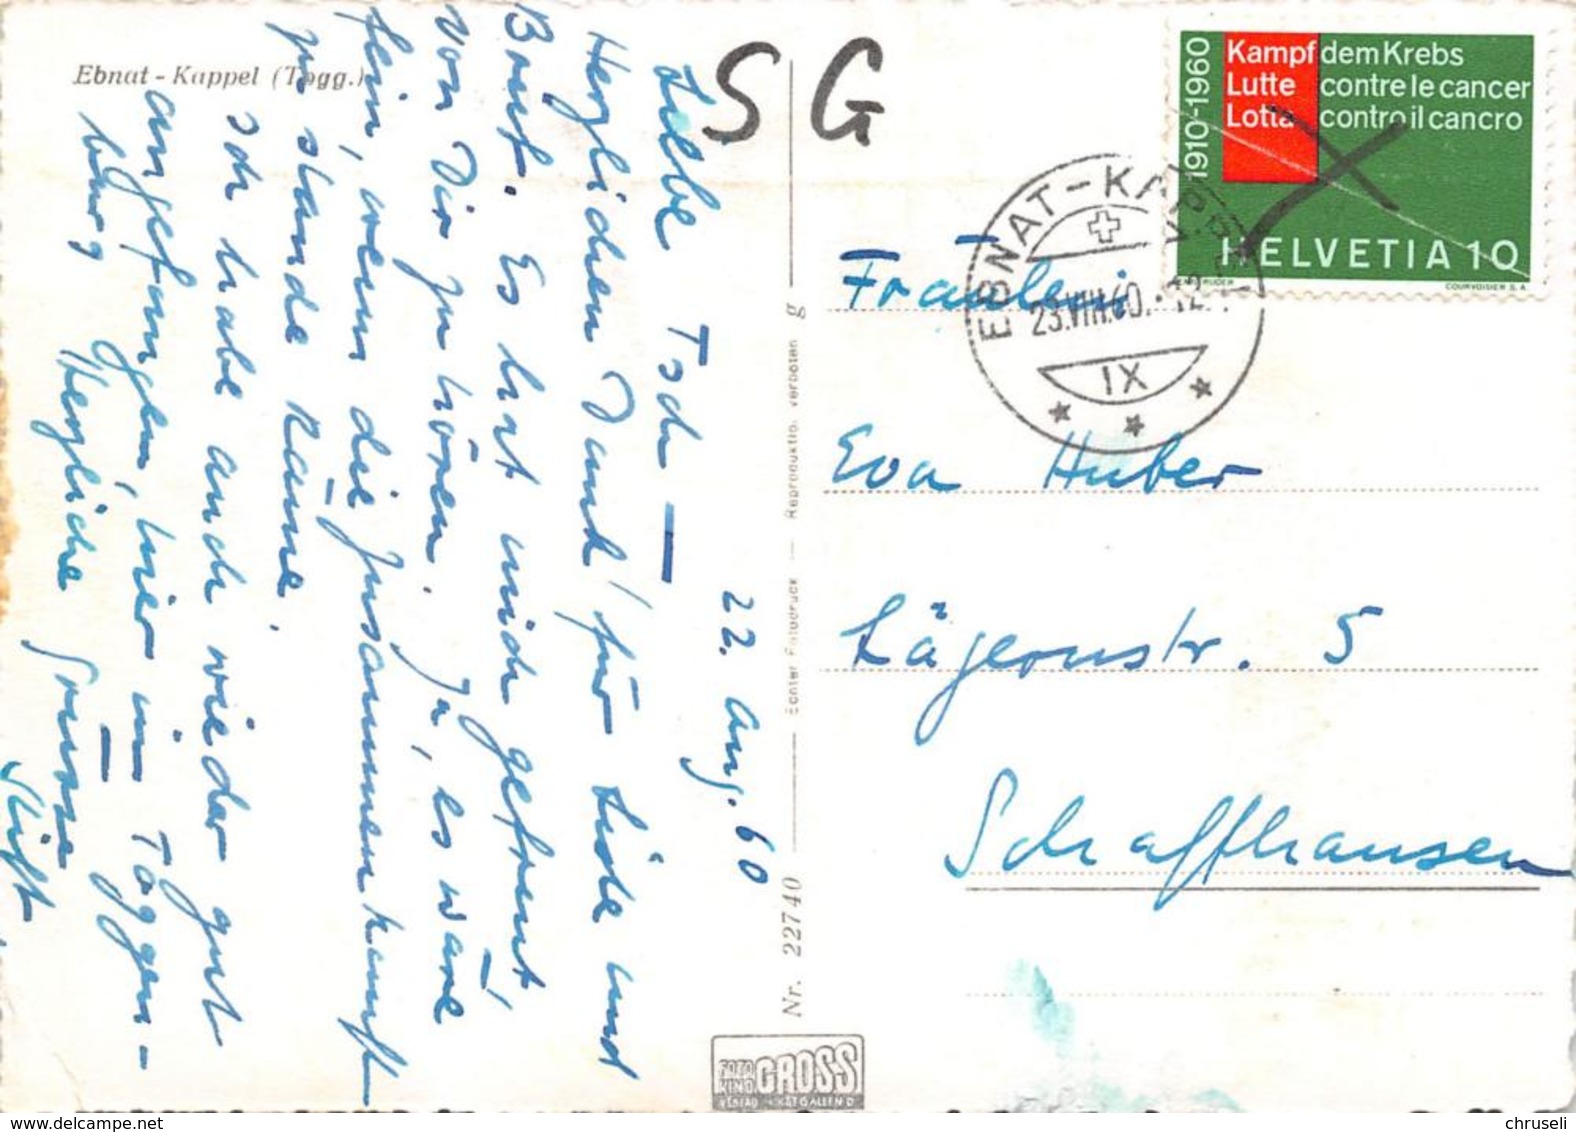 Ebnat - Kappel (Togg.)
SG
22. Aug. 60
Liebe Tsch —
Herzlichen Dank für Lide und
Brief. Es hat mich gefreut,
von Dir zu hören. Ja, es wäre
fein, wenn die Zusammenkunft
zu stande käme.
Ich habe auch wieder gut
angefangen, hier im Toggen-
burg
Herzliche Grüsse
Nr. 22740 — Echter Fotodruck — Reproduktio. verboten g
FOTO
KINO
GROSS
VERLAG ST.GALLEN D
1910-1960
Kampf dem Krebs
Lutte contre le cancer
Lotta contro il cancro
HELVETIA 10
COURVOISIER S.A.
EBNAT-KAPPEL
23.VIII.60.-12
IX
Fräulein
Eva Huber
Lägernstr. 5
Schaffhausen
© chruseli